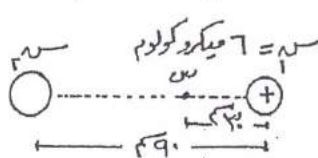 سـ٢
سـ١ = ٦ ميكروكولوم
س
+
٣٠سم
٩٠سم